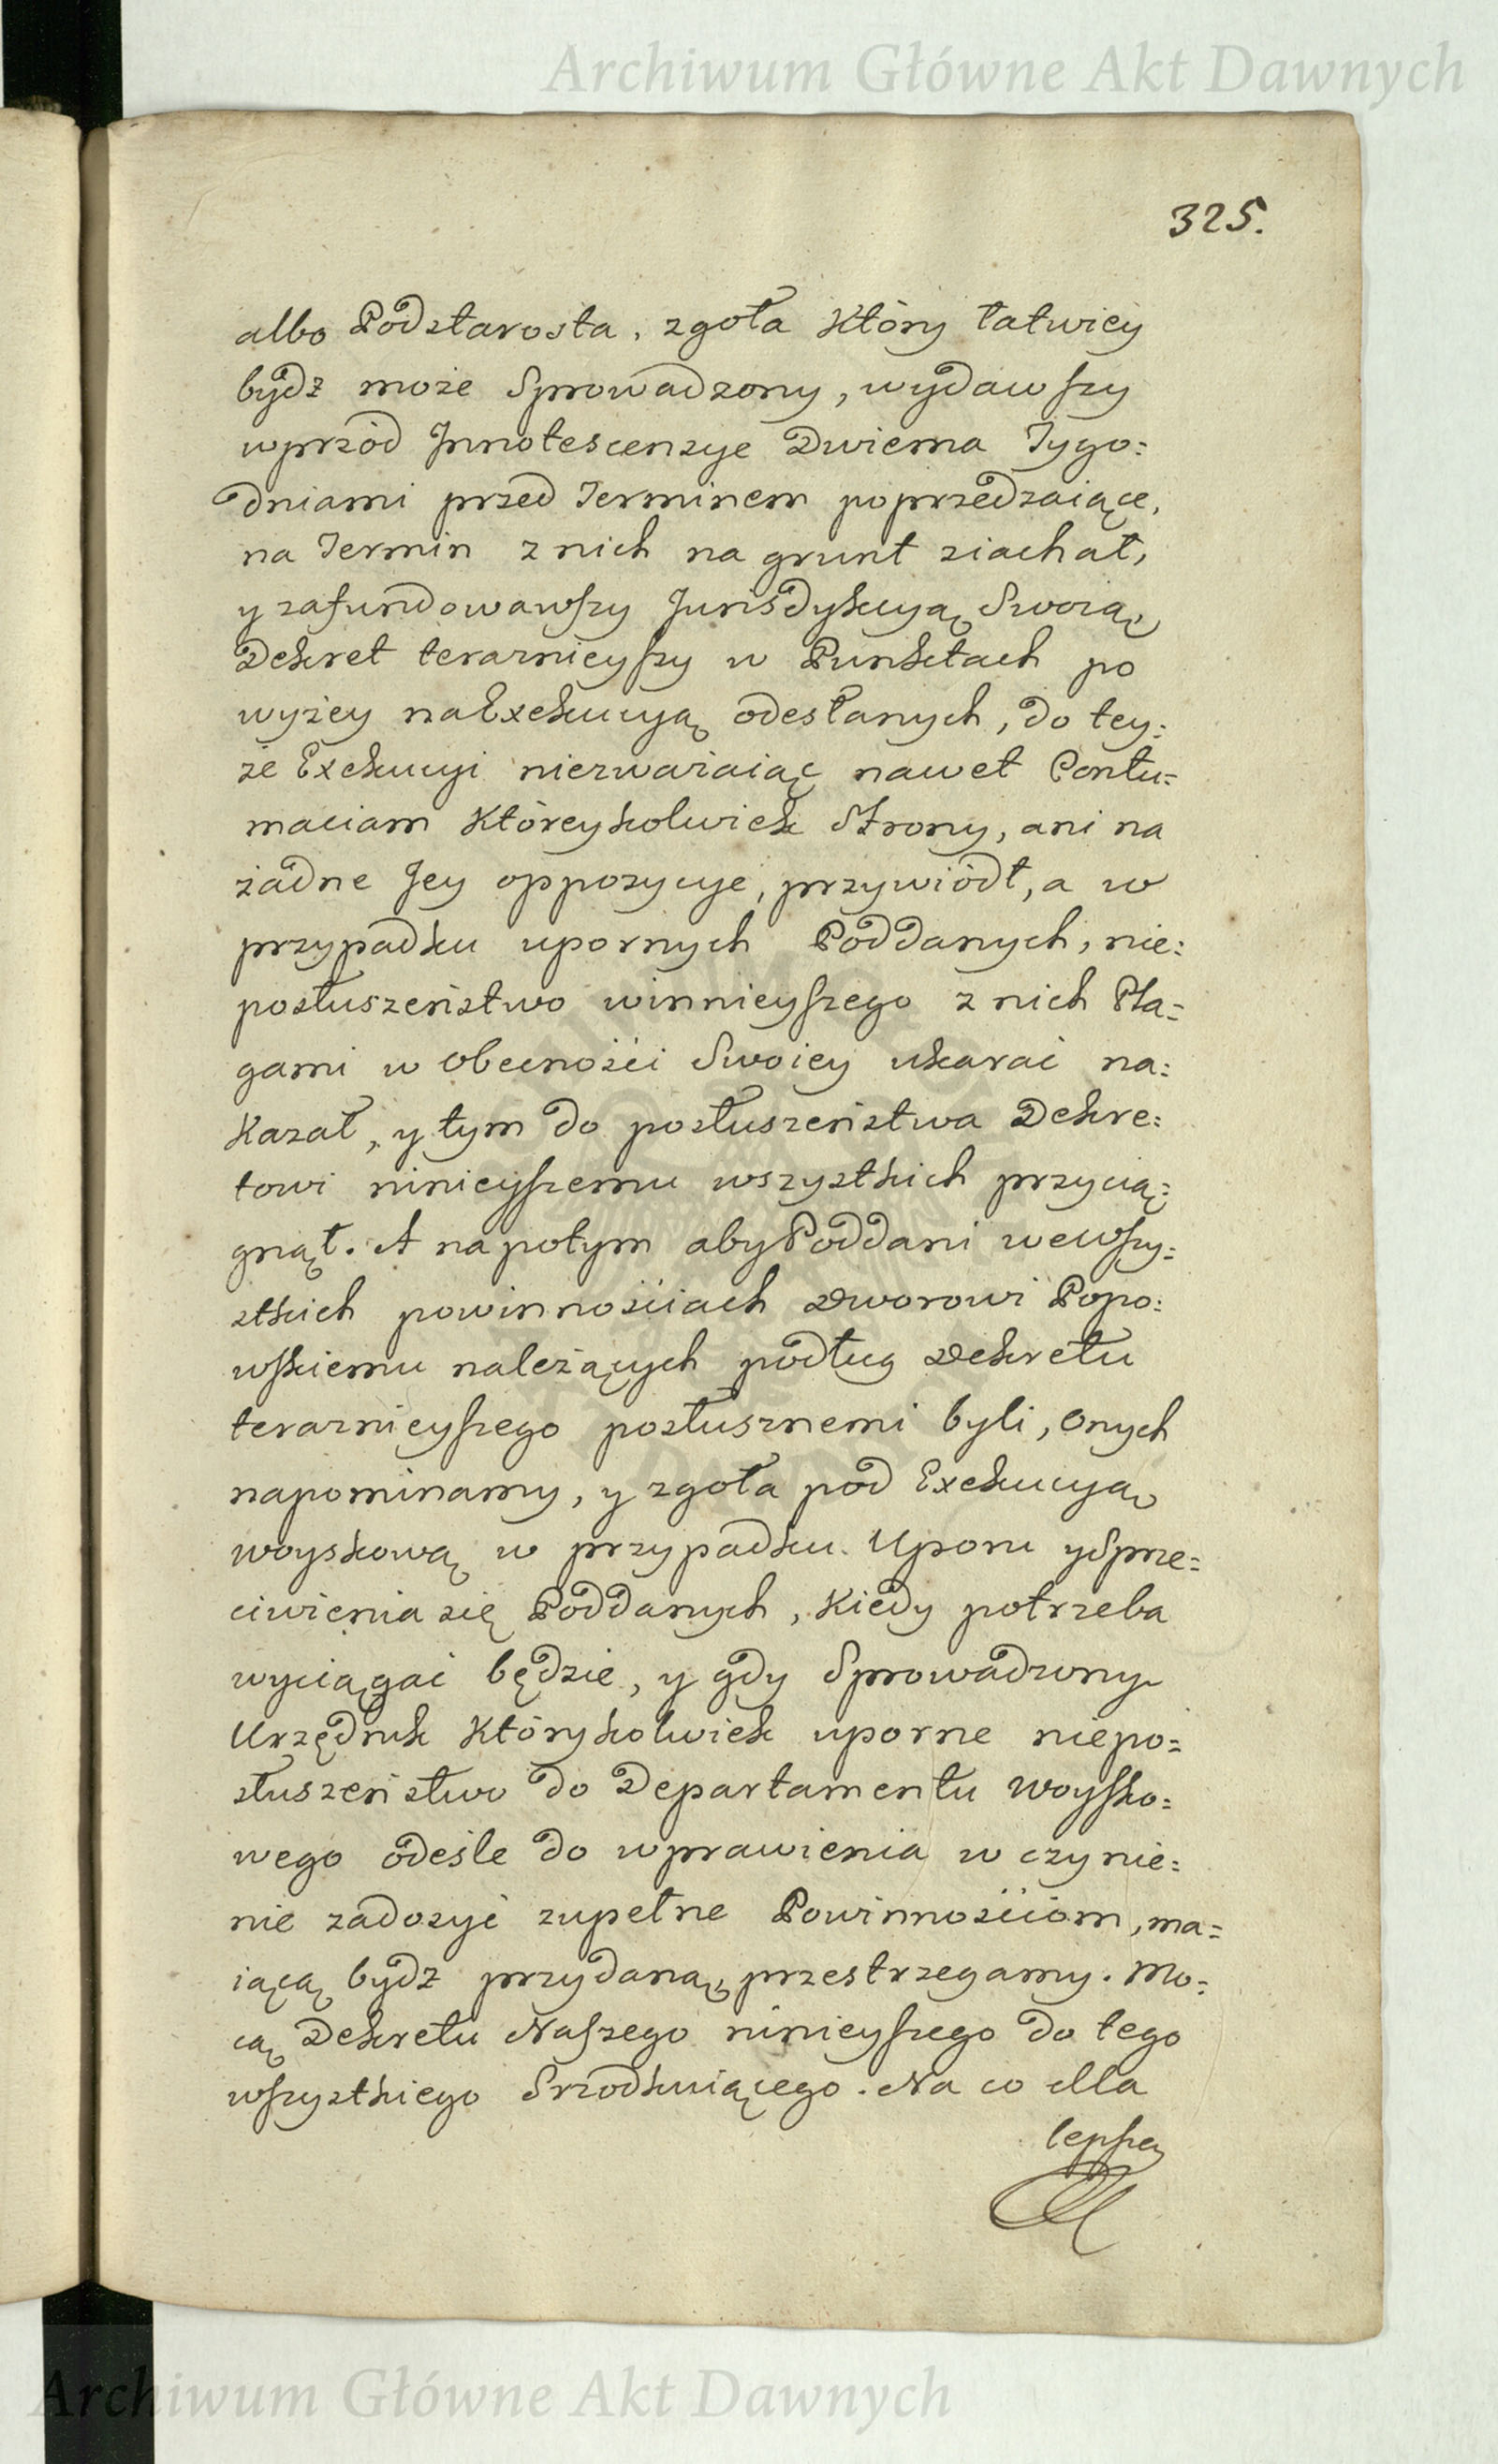 Archiwum Główne Akt Dawnych
325.
albo Podstarosta, zgoła który łatwiey
bydz może Sprowadzony, wydawszy
wprzód Innotescenzye Dwiema Tygo:
dniami przed Terminem poprzedzaiące,
na Termin z nich na grunt ziachał,
y zafundowawszy Jurisdykcyą Swoią
Dekret teraznieyszy w Punktach po
wyżey na Exekucyą odesłanych, do tey:
że Exekucyi niezwaźaiąc nawet Contu=
maciam któreykolwiek Strony, ani na
żadne Jey oppozycye, przywiódł, a w
przypadku upornych Poddanych, nie:
posłuszeństwo winnieyszego z nich Pla=
gami w obecności Swoiey ukarać na:
kazał, y tym do posłuszeństwa Dekre:
towi ninieyszemu wszystkich przycią:
gnął. A napotym aby Poddani wewszy:
stkich powinnościach Dworowi Popo:
wskiemu należących podług Dekretu
teraznieyszego posłusznemi byli, onych
napominamy, y zgoła pod Exekucyą
woyskową w przypadku Uporu y Sprze=
ciwienia się Poddanych, kiedy potrzeba
wyciągać będzie, y gdy Sprowadzony
Urzędnik którykolwiek uporne niepo=
słuszeństwo do Departamentu Woysko=
wego odeśle do wprawienia w czynie:
nie zadosyć zupełne Powinnościom, ma=
iącą bydz przydaną, przestrzegamy. Mo:
cą Dekretu Naszego ninieyszego do tego
wszystkiego Srzodkuiącego. Na co dla
lepszey
Archiwum Główne Akt Dawnych